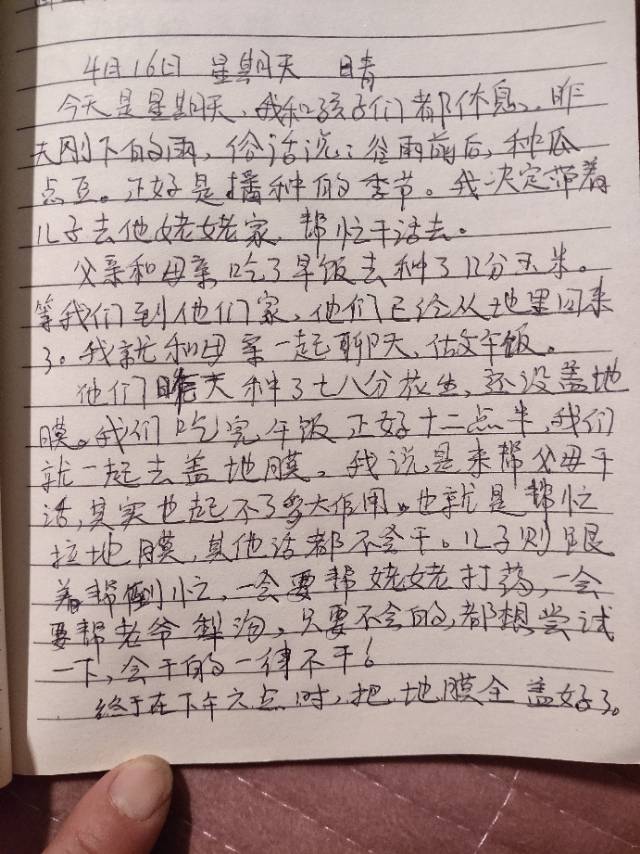 4月16日 星期天 晴
今天是星期天,我和孩子们都休息。昨
天刚下的雨,俗话说:谷雨前后,种瓜
点豆。正好是播种的季节。我决定带着
儿子去他姥姥家,帮忙干活去。
父亲和母亲吃了早饭去种了几分玉米。
等我们到他们家,他们已经从地里回来
了。我就和母亲一起聊天,做午饭。
他们昨天种了七八分花生,还没盖地
膜。我们吃完午饭正好十二点半,我们
就一起去盖地膜。我说是来帮父母干
活,其实也起不了多大作用。也就是帮忙
拉地膜,其他活都不会干。儿子则跟
着帮倒忙,一会要帮姥姥打药,一会
要帮老爷犁沟,只要不会的,都想尝试
一下,会干的一律不干。
终于在下午六点时,把地膜全盖好了。